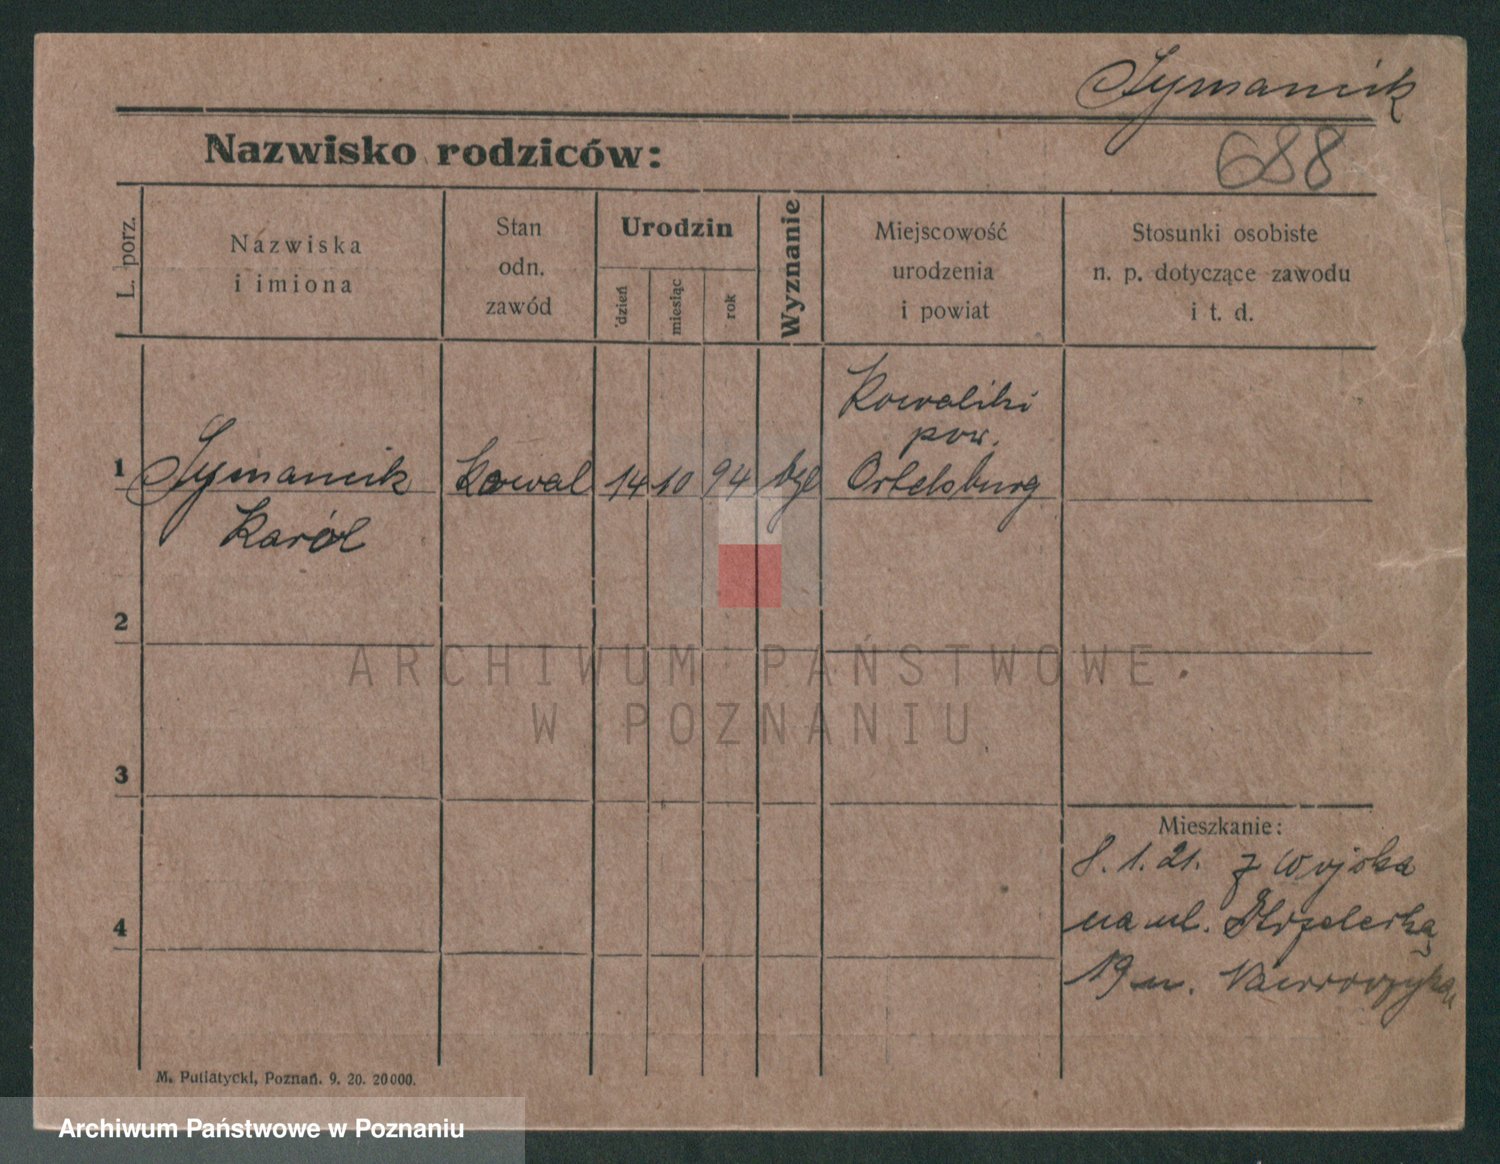 Symancik
688
Nazwisko rodziców:
L. porz.
Nazwiska
i imiona
Stan
odn.
zawód
Urodzin
dzień
miesiąc
rok
Wyznanie
Miejscowość
urodzenia
i powiat
Stosunki osobiste
n. p. dotyczące zawodu
i t. d.
Kowaliki
pow.
1 Symancik Kowal 14 10 94 Ortelsburg
Karól
2
3
4
Mieszkanie:
8. 1. 21. z Wojska
na ul. Strzelecką
19 u.
M. Putiatycki, Poznań. 9. 20. 20000.
ARCHIWUM PAŃSTWOWE
W POZNANIU
Archiwum Państwowe w Poznaniu